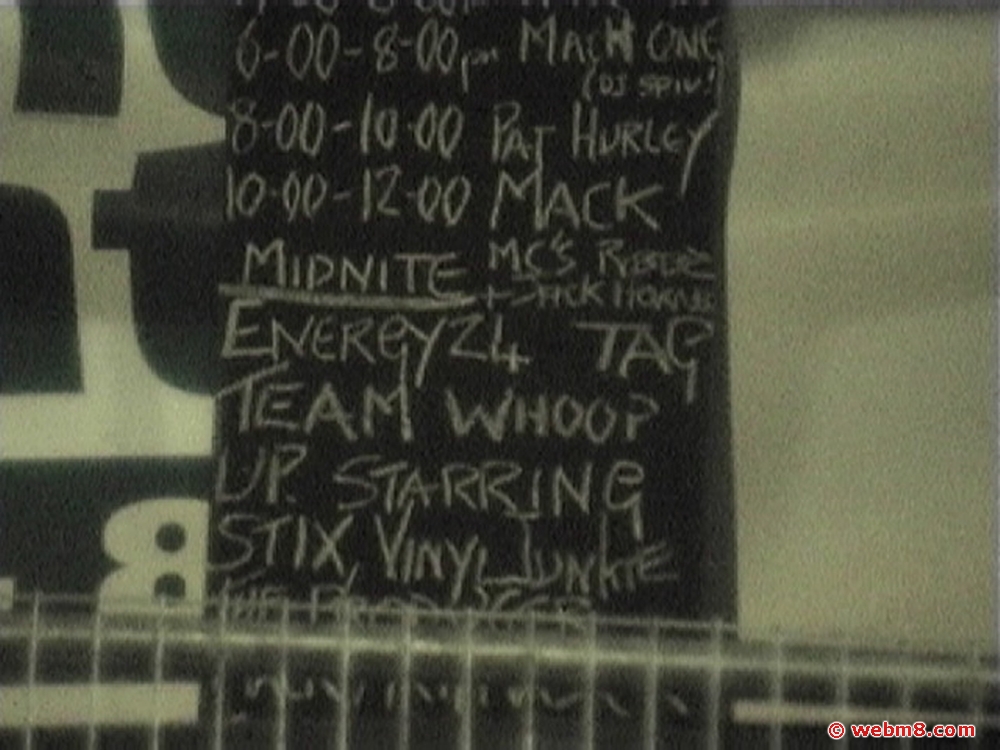 6-00-8-00pm MACH ONE
(DJ SPIV!
8-00-10-00 PAT HURLEY
10-00-12-00 MACK
MIDNITE MC'S
+
ENERGY 24 TAG
TEAM WHOOP
UP. STARRING
STIX, VINYL JUNKIE
8
© webm8.com